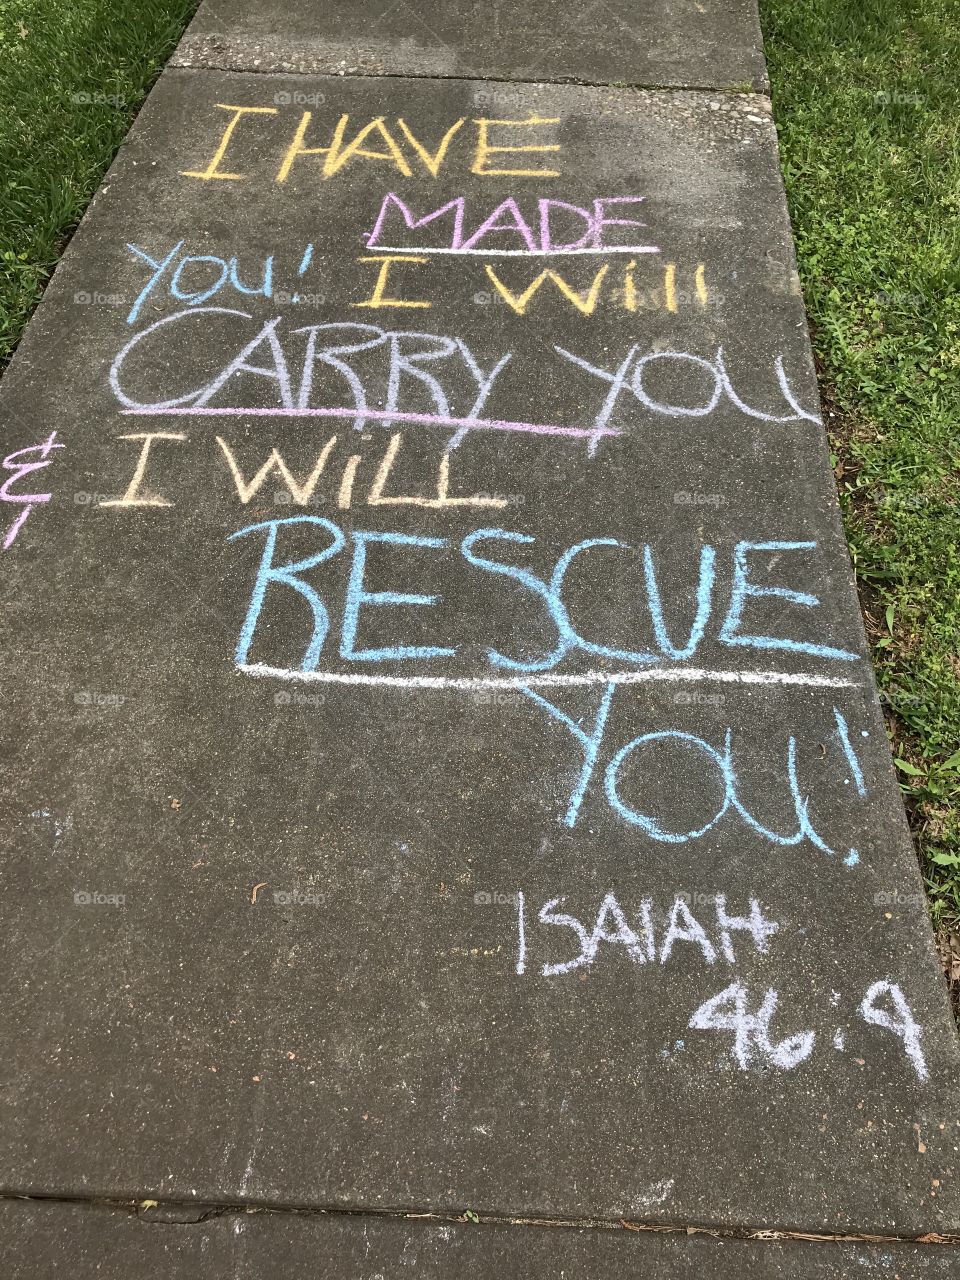 I HAVE
MADE
YOU! I Will
CARRY YOU
& I WiLL
RESCUE
YOU!
ISAIAH
46:9